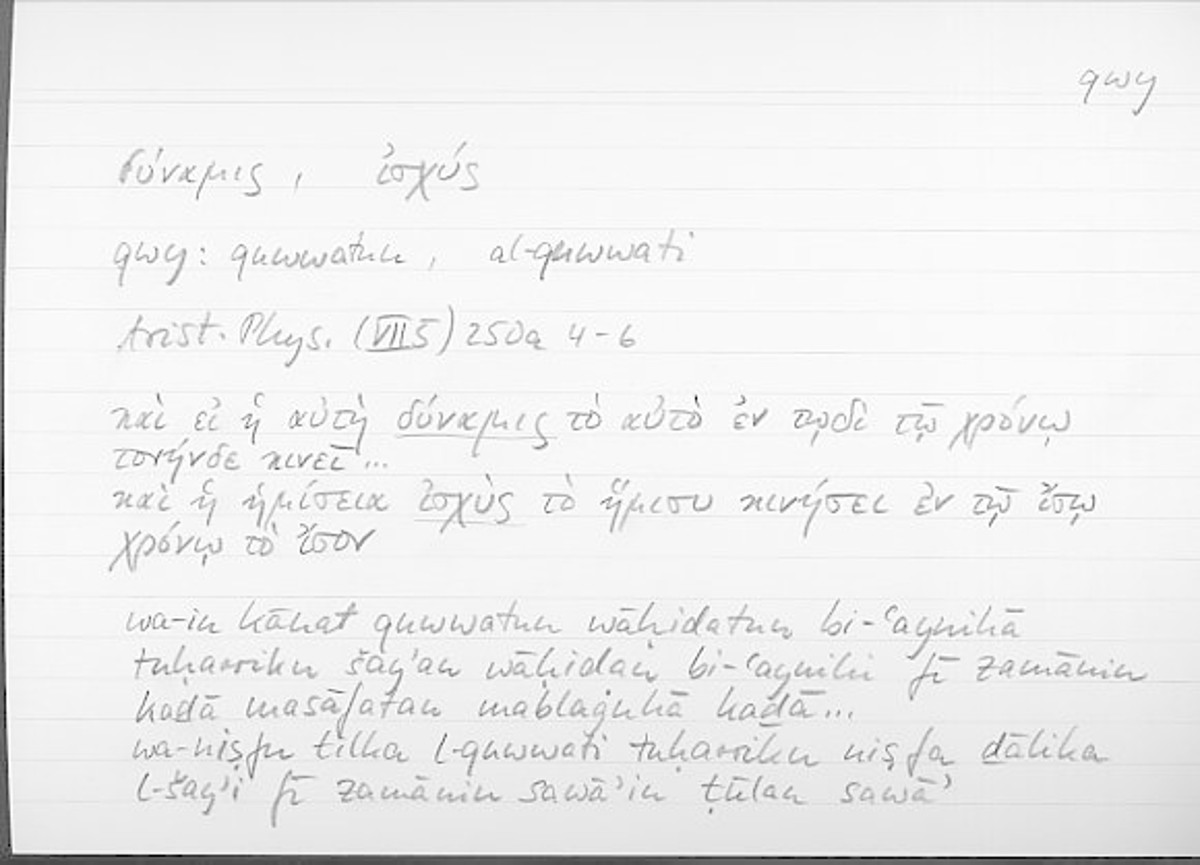 qwy
δύναμις, ἰσχύς
qwy: quwwatun, al-quwwati
Arist. Phys. (VII 5) 250a 4-6
καὶ εἰ ἡ αὐτὴ δύναμις τὸ αὐτὸ ἐν τῳδὶ τῷ χρόνῳ
τοσήνδε κινεῖ ...
καὶ ἡ ἡμίσεια ἰσχὺς τὸ ἥμισυ κινήσει ἐν τῷ ἴσῳ
χρόνῳ τὸ ἴσον
wa-in kānat quwwatun wāḥidatun bi-ʿaynihā
tuḥarriku šayʾan wāḥidan bi-ʿaynihi fī zamānin
kaḏā masāfatan mablaġuhā kaḏā ...
wa-niṣfu tilka l-quwwati tuḥarriku niṣfa ḏālika
l-šayʾi fī zamānin sawāʾin ṭūlan sawāʾ